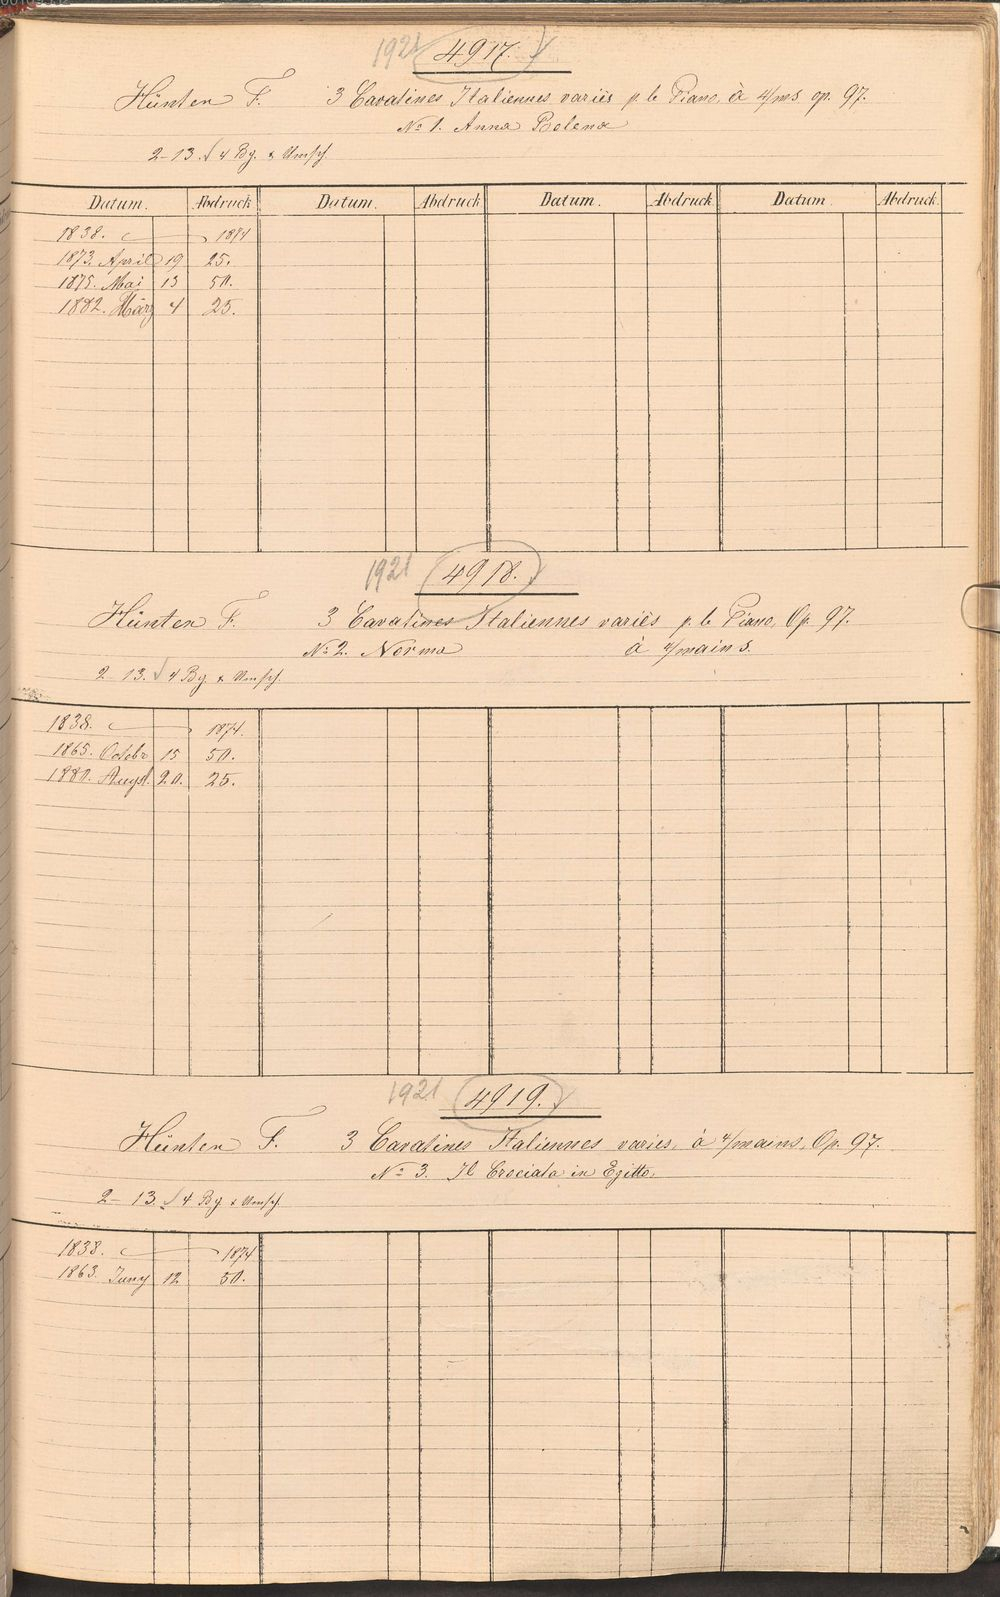 1921 4917.
Hünten F. 3 Cavatines Italiennes variés p. le Piano, à 4/ms op. 97.
No 1. Anna Bolena
2-13. √ 4 Bg. & Umsch.
Datum. Abdruck Datum. Abdruck Datum. Abdruck Datum. Abdruck
1838. 1874
1873. April 19 25.
1875. Mai 13 50.
1882. März 4 25.
1921 4918.
Hünten F. 3 Cavatines Italiennes variés p. le Piano, Op. 97.
No 2. Norma à 4/mains.
2-13. √ 4 Bg. & Umsch.
1838. 1874.
1865. Octobr 15 50.
1880. Augst. 20. 25.
1921 4919.
Hünten F. 3 Cavatines Italiennes variés, à 4/mains, Op. 97.
No 3. Il Crociato in Egitto.
2-13. √ 4 Bg. & Umsch.
1838. 1874
1863. Juny 12 50.